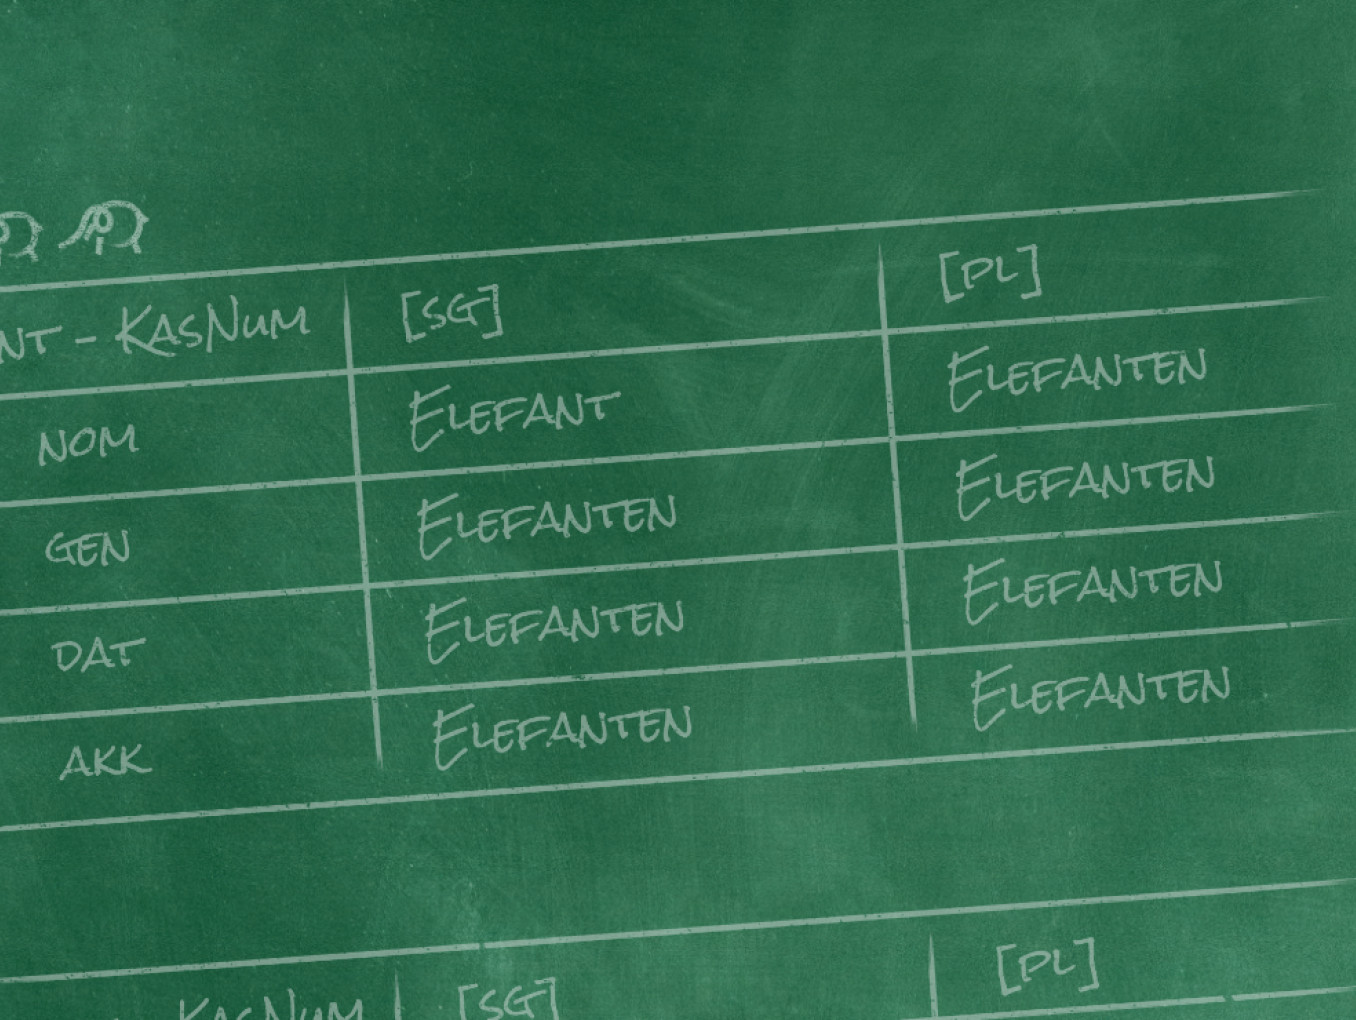 NT - KASNUM [SG] [PL]
NOM ELEFANT ELEFANTEN
GEN ELEFANTEN ELEFANTEN
DAT ELEFANTEN ELEFANTEN
AKK ELEFANTEN ELEFANTEN
KASNUM [SG] [PL]